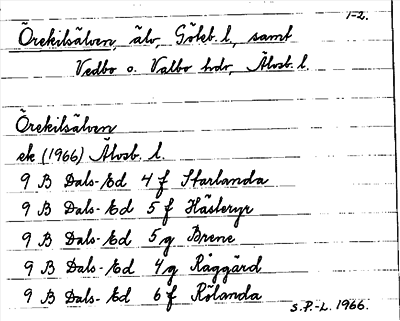 1-2.
Örekilsälven, älv, Göteb. l., samt
Vedbo o. Valbo hdr, Älvsb. l.
Örekilsälven
ek (1966) Älvsb. l.
9 B Dals-Ed 4 f Starlanda
9 B Dals-Ed 5 f Hästeryr
9 B Dals-Ed 5 g Brene
9 B Dals-Ed 4 g Råggärd
9 B Dals-Ed 6 f Rölanda
S.P.-L. 1966.